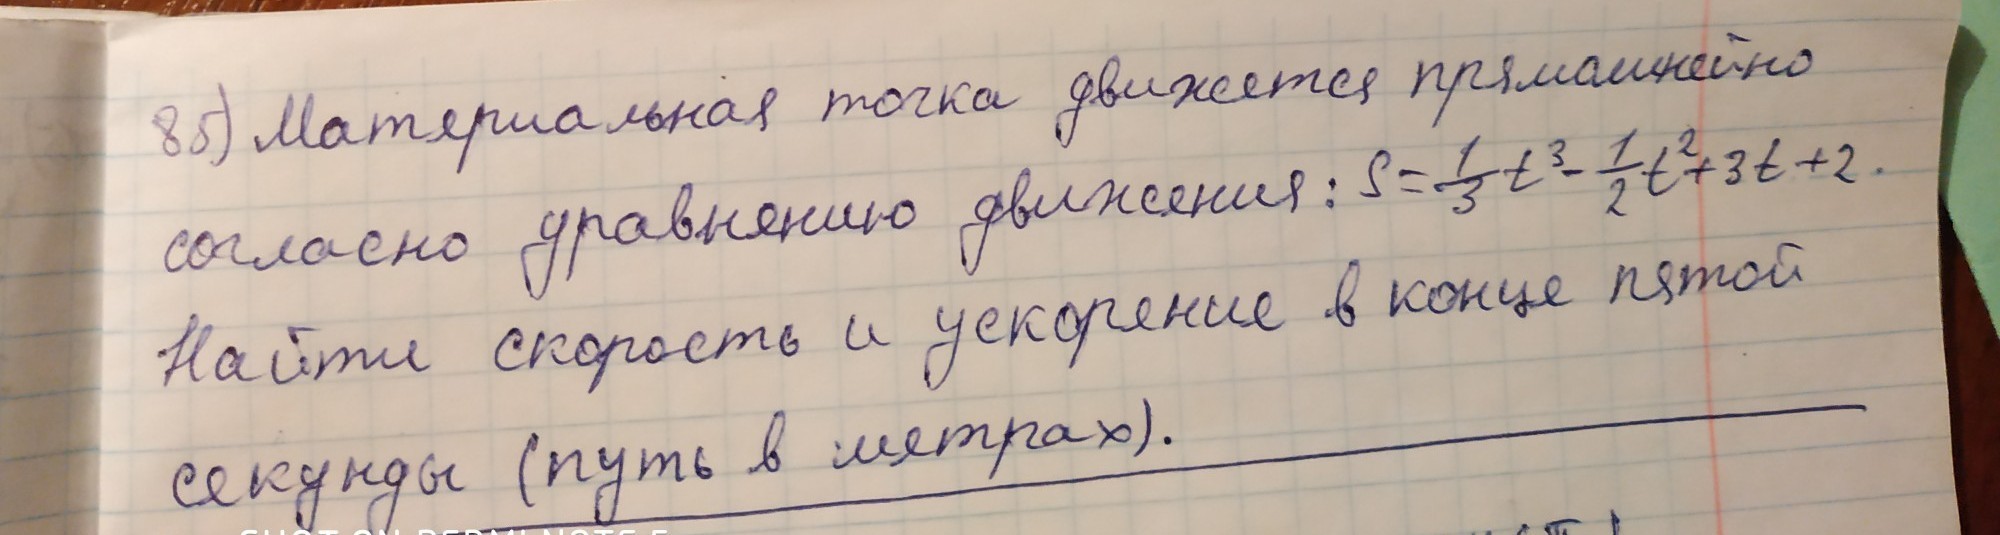 85) Материальная точка движется прямолинейно
согласно уравнению движения: S = 1/3 t³ - 1/2 t² + 3t + 2.
Найти скорость и ускорение в конце пятой
секунды (путь в метрах).
SHOT ON REDMI NOTE 5